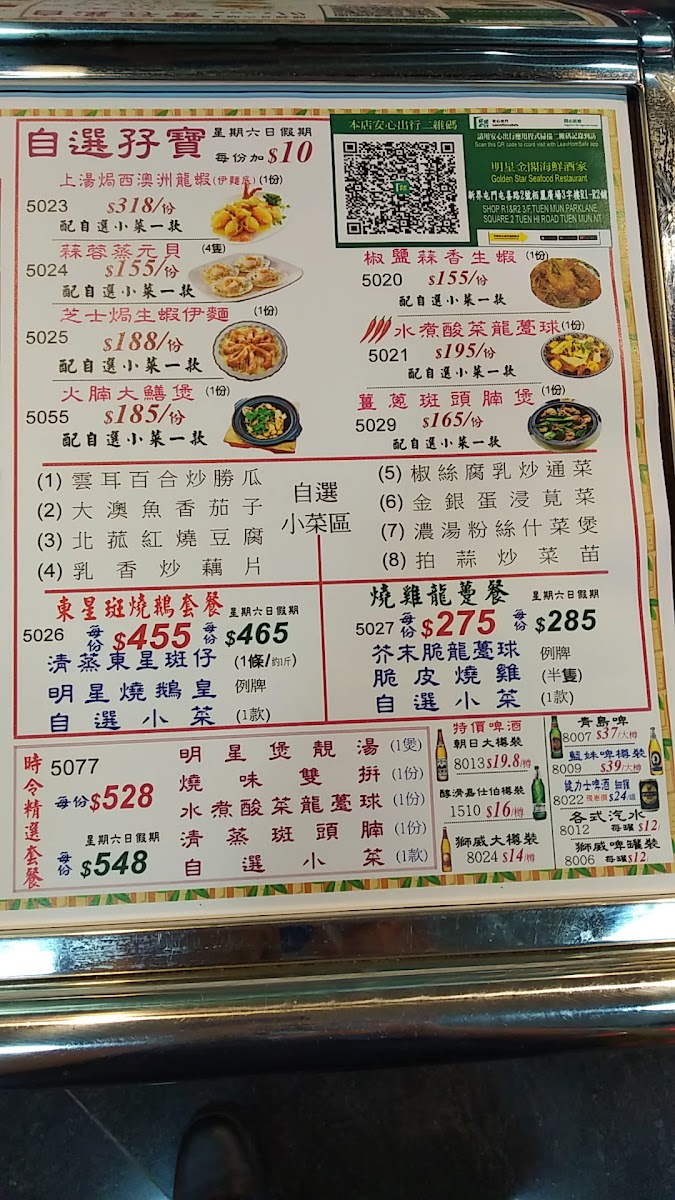 自選孖寶
星期六日假期
每份加$10
本店安心出行二維碼
安心出行
請用安心出行應用程式掃描二維碼記錄到訪
Scan this QR code to record visit with LeaveHomeSafe app
明星金閣海鮮酒家
Golden Star Seafood Restaurant
新界屯門屯喜路2號栢麗廣場3字樓R1-R2舖
SHOP R1&R2 3/F,TUEN MUN PARKLANE
SQUARE 2 TUEN HI ROAD TUEN MUN,NT
上湯焗西澳洲龍蝦(伊麵底)(1份)
5023 $318/份
配自選小菜一款
蒜蓉蒸元貝 (4隻)
5024 $155/份
配自選小菜一款
芝士焗生蝦伊麵 (1份)
5025 $188/份
配自選小菜一款
火腩大鱔煲 (1份)
5055 $185/份
配自選小菜一款
椒鹽蒜香生蝦 (1份)
5020 $155/份
配自選小菜一款
水煮酸菜龍躉球(1份)
5021 $195/份
配自選小菜一款
薑蔥斑頭腩煲 (1份)
5029 $165/份
配自選小菜一款
(1) 雲耳百合炒勝瓜
(2) 大澳魚香茄子
(3) 北菰紅燒豆腐
(4) 乳香炒藕片
自選
小菜區
(5) 椒絲腐乳炒通菜
(6) 金銀蛋浸莧菜
(7) 濃湯粉絲什菜煲
(8) 拍蒜炒菜苗
東星斑燒鵝套餐 星期六日假期
5026 每份$455 每份$465
清蒸東星斑仔 (1條/約1斤)
明星燒鵝皇 例牌
自選小菜 (1款)
燒雞龍躉餐 星期六日假期
5027 每份$275 每份$285
芥末脆龍躉球 例牌
脆皮燒雞 (半隻)
自選小菜 (1款)
時令精選套餐
5077
每份$528
星期六日假期
每份$548
明星煲靚湯 (1煲)
燒味雙拼 (1份)
水煮酸菜龍躉球 (1份)
清蒸斑頭腩 (1份)
自選小菜 (1款)
特價啤酒
朝日大樽裝
8013 $19.8/樽
醇滑嘉仕伯樽裝
1510 $16/樽
獅威大樽裝
8024 $14/樽
青島啤
8007 $37/大樽
藍妹啤樽裝
8009 $39/大樽
健力士啤酒 細罐
8022 優惠價$24/罐
各式汽水
8012 每罐$12/
獅威啤罐裝
8006 每罐$12/